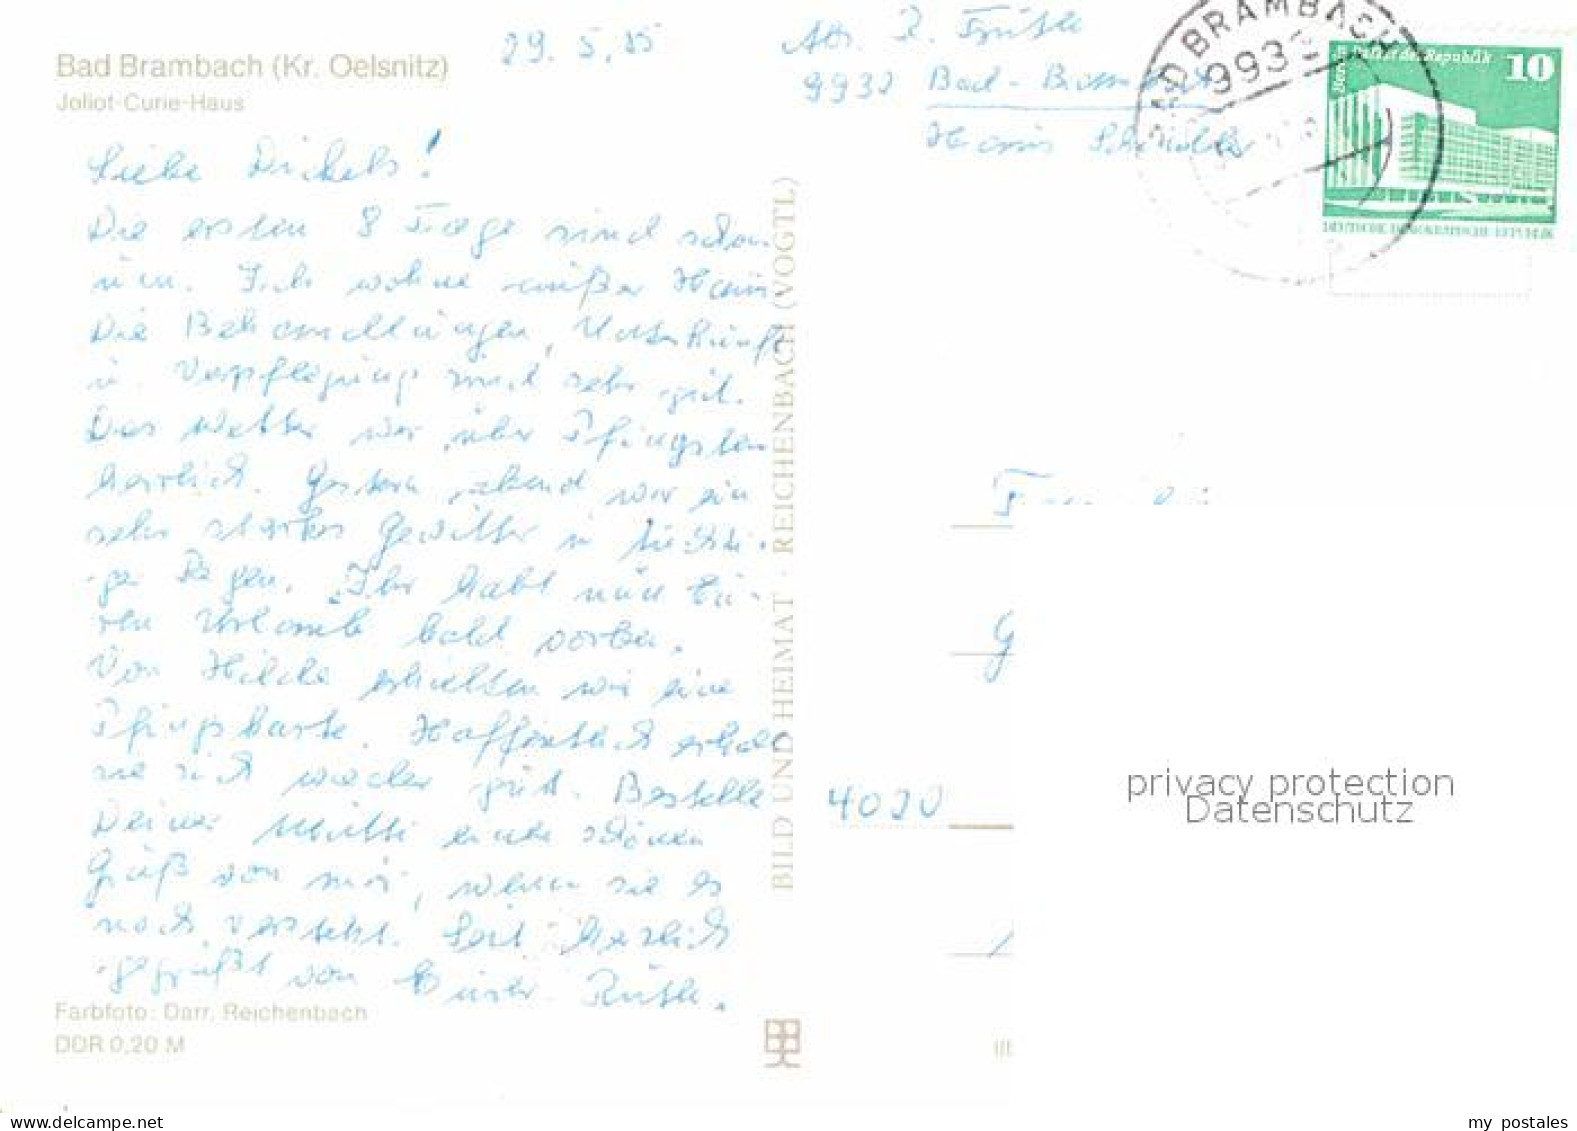 Bad Brambach (Kr. Oelsnitz)
Joliot-Curie-Haus
29. 5. 85
Abs. R.
9932 Bad-Brambach
Haus
BAD BRAMBACH
993
Berlin - Palast der Republik 10
DEUTSCHE DEMOKRATISCHE REPUBLIK
Liebe Dickels!
Die ersten 8 Tage sind schon
um. Ich wohne außer Haus.
Die Behandlungen, Unterkunft
u. Verpflegung sind sehr gut.
Das Wetter war über Pfingsten
herrlich. Gestern abend war ein
sehr starkes Gewitter u. tüchti-
ger Regen. Ihr habt nun Eu-
ren Urlaub bald vorbei.
Von Hilde erhielten wir eine
Pfingstkarte. Hoffentlich erholt
sie sich wieder gut. Bestelle
Deiner Mutti einen schönen
Gruß von mir, wenn sie es
noch versteht. Seid herzlich
gegrüßt von Eurer Ruth.
BILD UND HEIMAT · REICHENBACH (VOGTL)
G
4020
privacy protection
Datenschutz
Farbfoto: Darr, Reichenbach
DDR 0,20 M
III
www.delcampe.net
my_postales